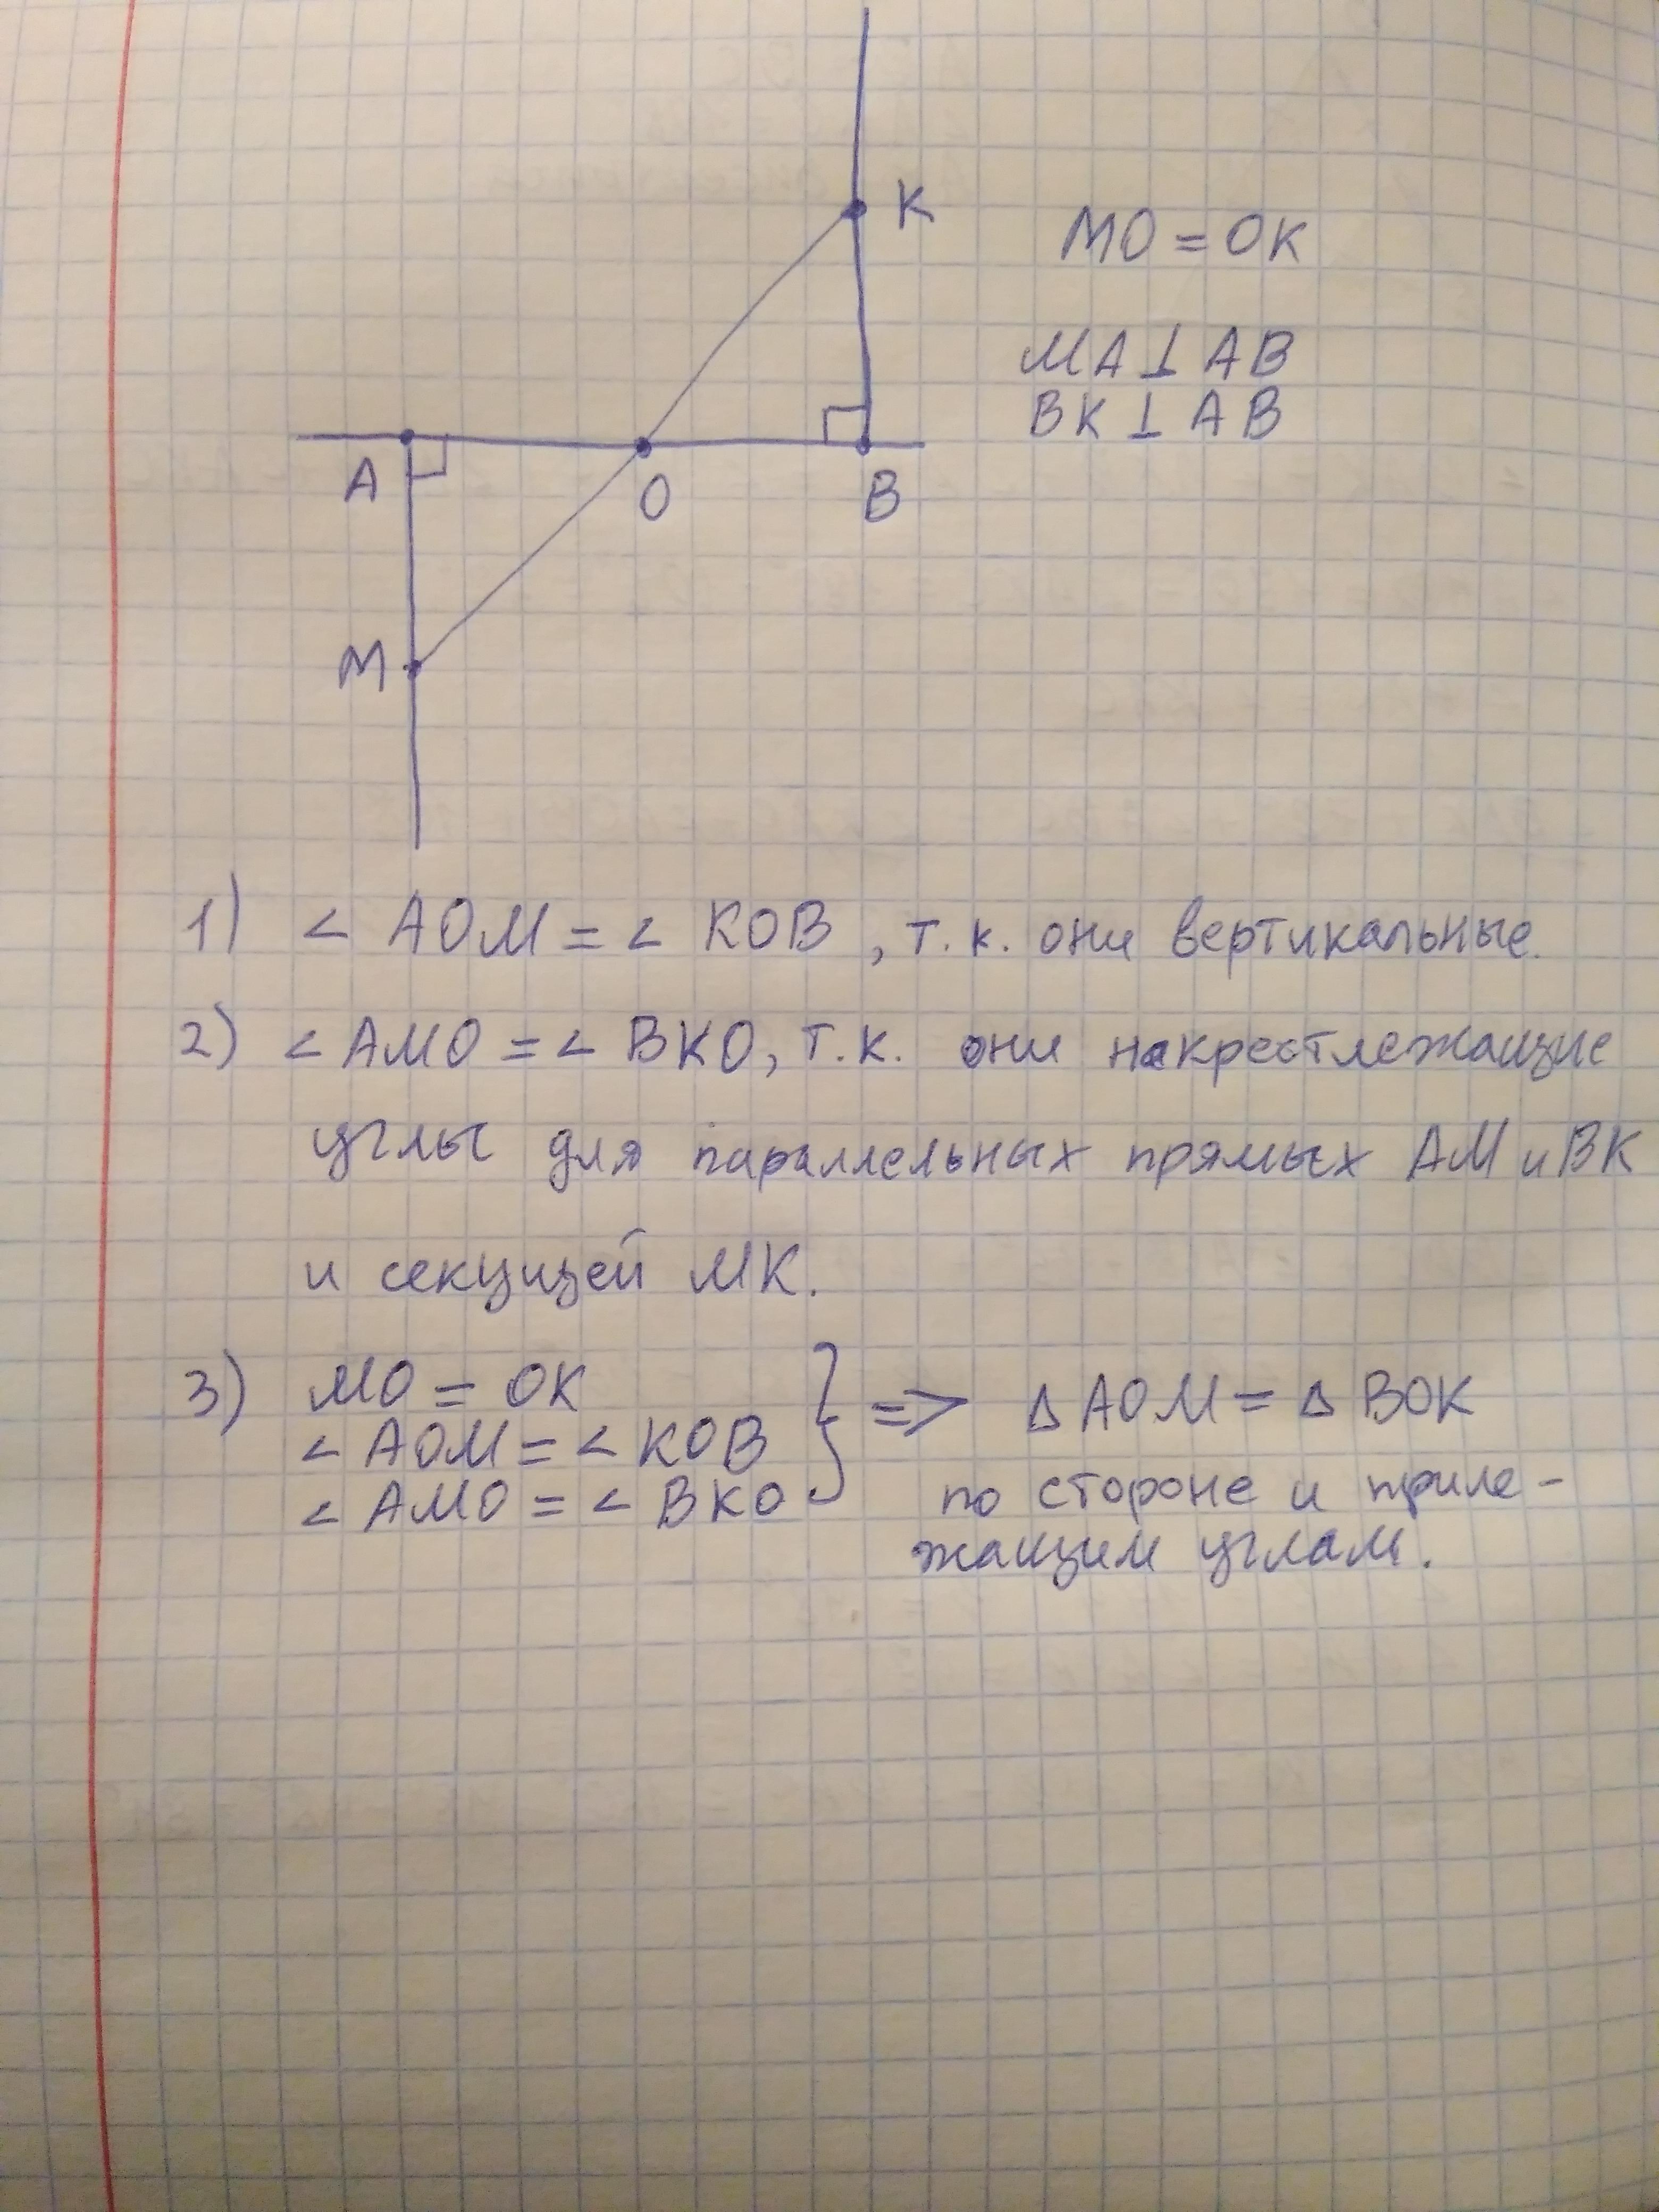 K
MO = OK
MA ⊥ AB
BK ⊥ AB
A
O
B
M
1) < AOM = < KOB, т.к. они вертикальные.
2) < AMO = < BKO, т.к. они накрестлежащие
углы для параллельных прямых AM и BK
и секущей MK.
3) MO = OK
< AOM = < KOB
< AMO = < BKO
} => Δ AOM = Δ BOK
по стороне и приле-
жащим углам.